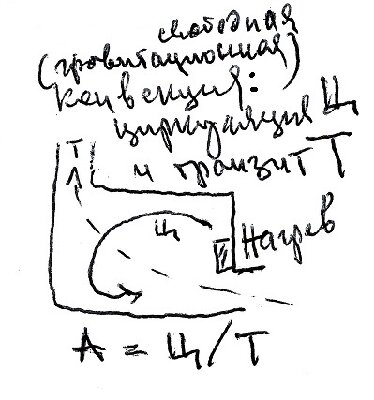 свободная
(гравитационная)
конвекция:
циркуляция Ц
и транзит Т
Т
Ц
Нагрев
A = Ц/Т